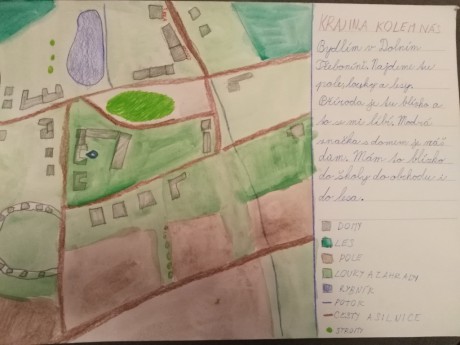 KRAJINA KOLEM NÁS
Bydlím v Dolním
Třeboníně. Najdeme tu
pole, louky a lesy.
Příroda je tu blízko a
to se mi líbí. Modrá
značka s domem je náš
dům. Mám to blízko
do školy do obchodu i
do lesa.
DOMY
LES
POLE
LOUKY A ZAHRADY
RYBNÍK
POTOK
CESTY A SILNICE
STROMY